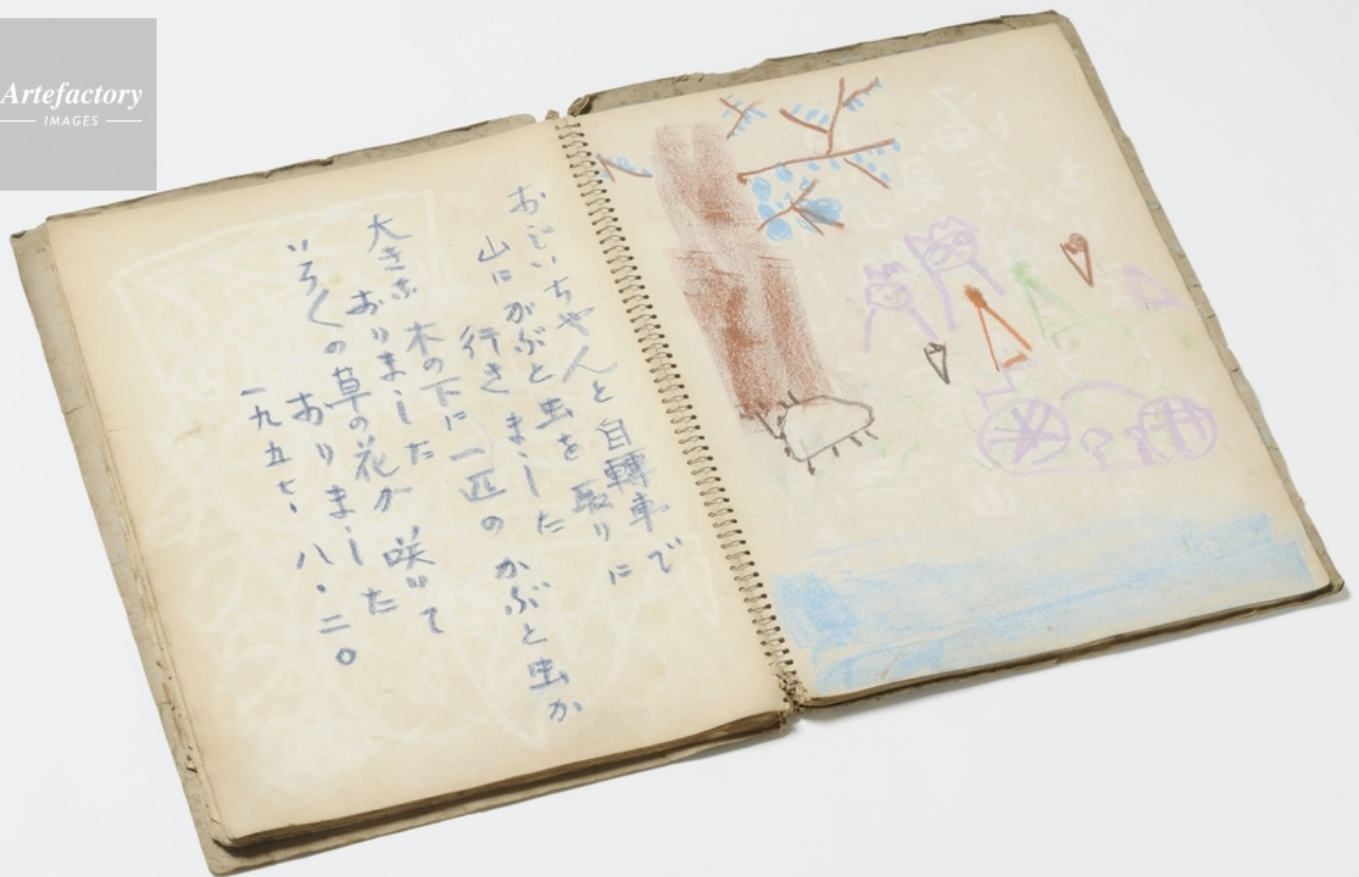 Artefactory
IMAGES
おじいちゃんと自轉車で
山にがぶと虫を取りに
行きました
大きな木の下に一匹のかぶと虫か
おりました
いろくの草の花が咲いて
おりました
一九五七、八・二〇